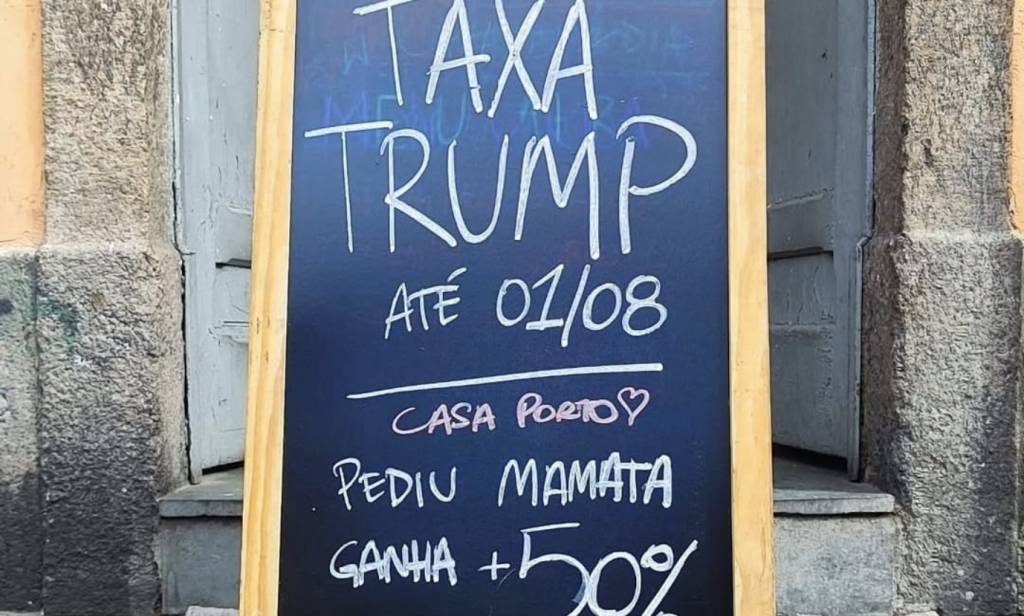 TAXA
TRUMP
ATÉ 01/08
CASA PORTO♡
PEDIU MAMATA
GANHA +50%